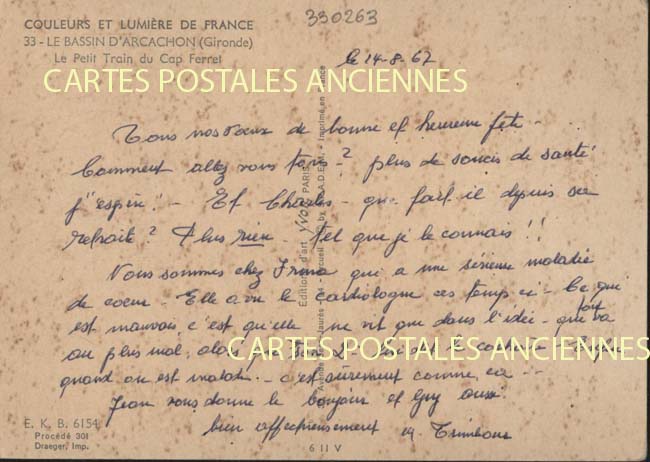 330263
COULEURS ET LUMIÈRE DE FRANCE
33 - LE BASSIN D'ARCACHON (Gironde)
Le Petit Train du Cap Ferret
le 14-8-67
CARTES POSTALES ANCIENNES
Tous nos vœux de bonne et heureuse fête -
Comment allez vous tous ? plus de soucis de santé
j'espère ! - Et Charles - que fait il depuis sa
retraite ? Plus rien - tel que je le connais !!
Nous sommes chez Irma qui a une sérieuse maladie
de coeur - Elle a vu le cardiologue ces temps ci - Ce qui
est mauvais, c'est qu'elle ne vit que dans l'idée - que tout va
au plus mal, alors que
CARTES POSTALES ANCIENNES
quand on est malade - c'est sûrement comme ça -
Jean vous donne le bonjour et Guy aussi
bien affectueusement
E. K. B. 6154
Procédé 301
Draeger, Imp.
6 II V
Editions d'art YVON PARIS
Imprimé en France